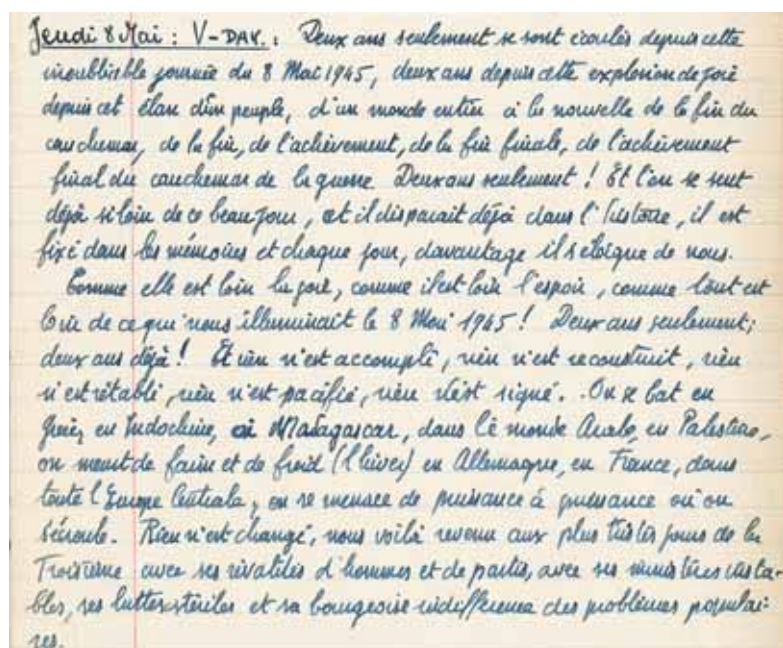 Jeudi 8 Mai : V-DAY. : Deux ans seulement se sont écoulés depuis cette
inoubliable journée du 8 Mai 1945, deux ans depuis cette explosion de joie
depuis cet élan d'un peuple, d'un monde entier à la nouvelle de la fin du
cauchemar, de la fin, de l'achèvement, de la fin finale, de l'achèvement
final du cauchemar de la guerre Deux ans seulement ! Et l'on se sent
déjà si loin de ce beau jour, et il disparait déjà dans l'histoire, il est
fixé dans les mémoires et chaque jour, davantage il s'éloigne de nous.
Comme elle est loin la joie, comme il est loin l'espoir, comme tout est
loin de ce qui nous illuminait le 8 Mai 1945 ! Deux ans seulement ;
deux ans déjà ! Et rien n'est accompli, rien n'est reconstruit, rien
n'est rétabli, rien n'est pacifié, rien n'est signé. On se bat en
Grèce, en Indochine, à Madagascar, dans le monde Arabe, en Palestine,
on meurt de faim et de froid (l'hiver) en Allemagne, en France, dans
toute l'Europe Centrale, on se menace de puissance à puissance où on
s'écroule. Rien n'est changé, nous voilà revenu aux plus tristes jours de la
Troisième avec ses rivalités d'hommes et de partis, avec ses ministères insta-
bles, ses luttes stériles et sa bourgeoise indifférence des problèmes populai-
res.